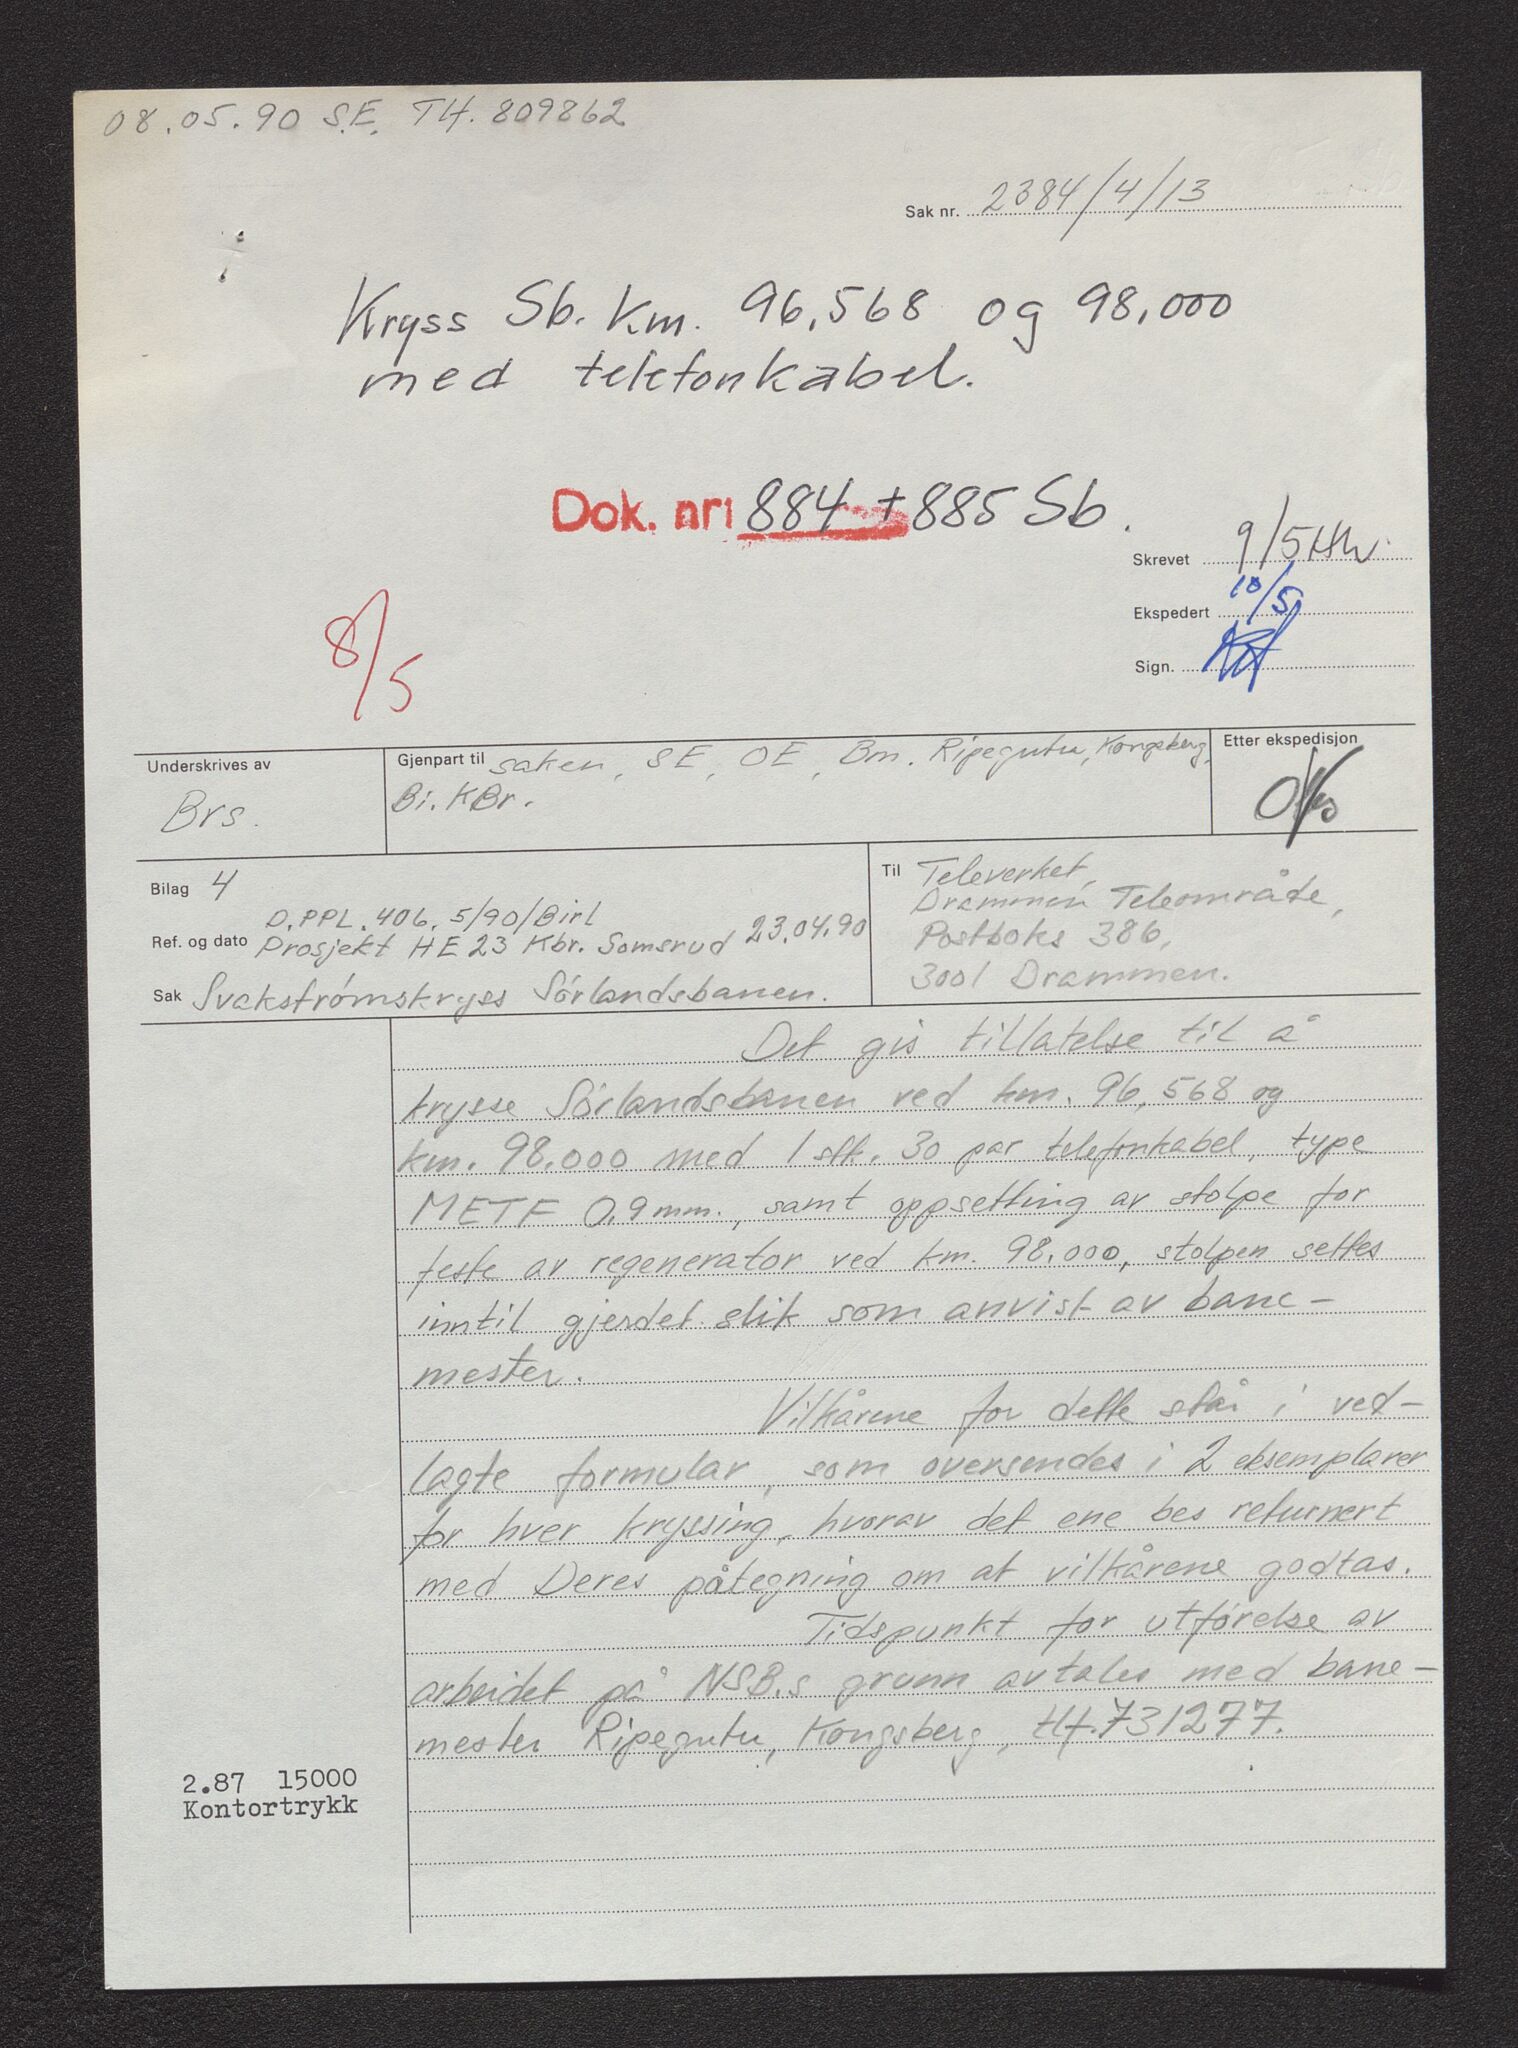 08.05.90 S.E. Tlf. 809862
Sak nr. 2384/4/13
Kryss Sb. km. 96,568 og 98,000
med telefonkabel.
Dok. nr: 884 + 885 Sb.
Skrevet 9/5 HW
Ekspedert 10/5
Sign.
8/5
Underskrives av
Brs.
Gjenpart til saken, SE, OE, Bm. Ripegutu, Kongsberg,
Bi. KBr.
Etter ekspedisjon
Bilag 4
Ref. og dato D.PPL.406.5/90/Birl
Prosjekt HE 23 Kbr. Somsrud 23.04.90
Sak Svakstrømskryss Sørlandsbanen.
Til Televerket,
Drammen Teleområde,
Postboks 386,
3001 Drammen.
Det gis tillatelse til å
krysse Sørlandsbanen ved km. 96,568 og
km. 98.000 med 1 stk. 30 par telefonkabel, type
METF 0,9 mm., samt oppsetting av stolpe for
feste av regenerator ved km. 98.000, stolpen settes
inntil gjerdet slik som anvist av bane-
mester.
Vilkårene for dette står i ved-
lagte formular, som oversendes i 2 eksemplarer
for hver kryssing, hvorav det ene bes returnert
med Deres påtegning om at vilkårene godtas.
Tidspunkt for utførelse av
arbeidet på NSB.s grunn avtales med bane-
mester Ripegutu, Kongsberg, tlf. 731277.
2.87 15000
Kontortrykk